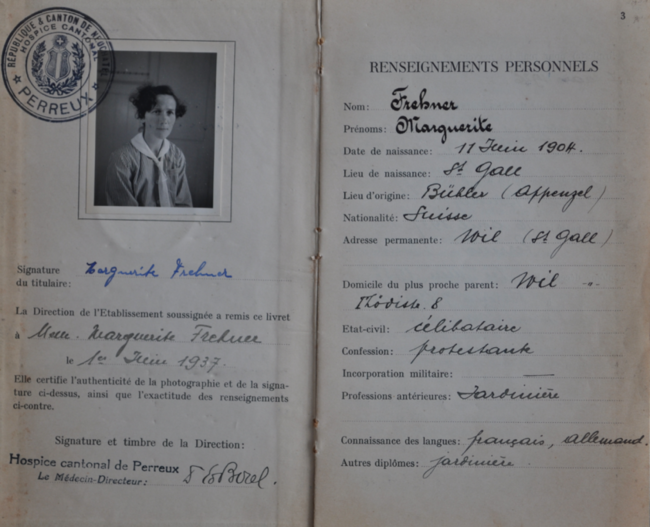 RÉPUBLIQUE & CANTON DE NEUCHATEL
HOSPICE CANTONAL
PERREUX
Signature
du titulaire: Marguerite Frehner
La Direction de l'Etablissement soussignée a remis ce livret
à Melle. Marguerite Frehner
le 1er Juin 1937.
Elle certifie l'authenticité de la photographie et de la signa-
ture ci-dessus, ainsi que l'exactitude des renseignements
ci-contre.
Signature et timbre de la Direction:
Hospice cantonal de Perreux
Le Médecin-Directeur: Borel.
3
RENSEIGNEMENTS PERSONNELS
Nom: Frehner
Prénoms: Marguerite
Date de naissance: 11 Juin 1904.
Lieu de naissance: St Gall
Lieu d'origine: Bühler (Appenzel)
Nationalité: Suisse
Adresse permanente: Wil (St Gall)
Domicile du plus proche parent: Wil
8
Etat-civil: célibataire
Confession: protestante
Incorporation militaire: —
Professions antérieures: Jardinière
Connaissance des langues: français, allemand.
Autres diplômes: jardinière.